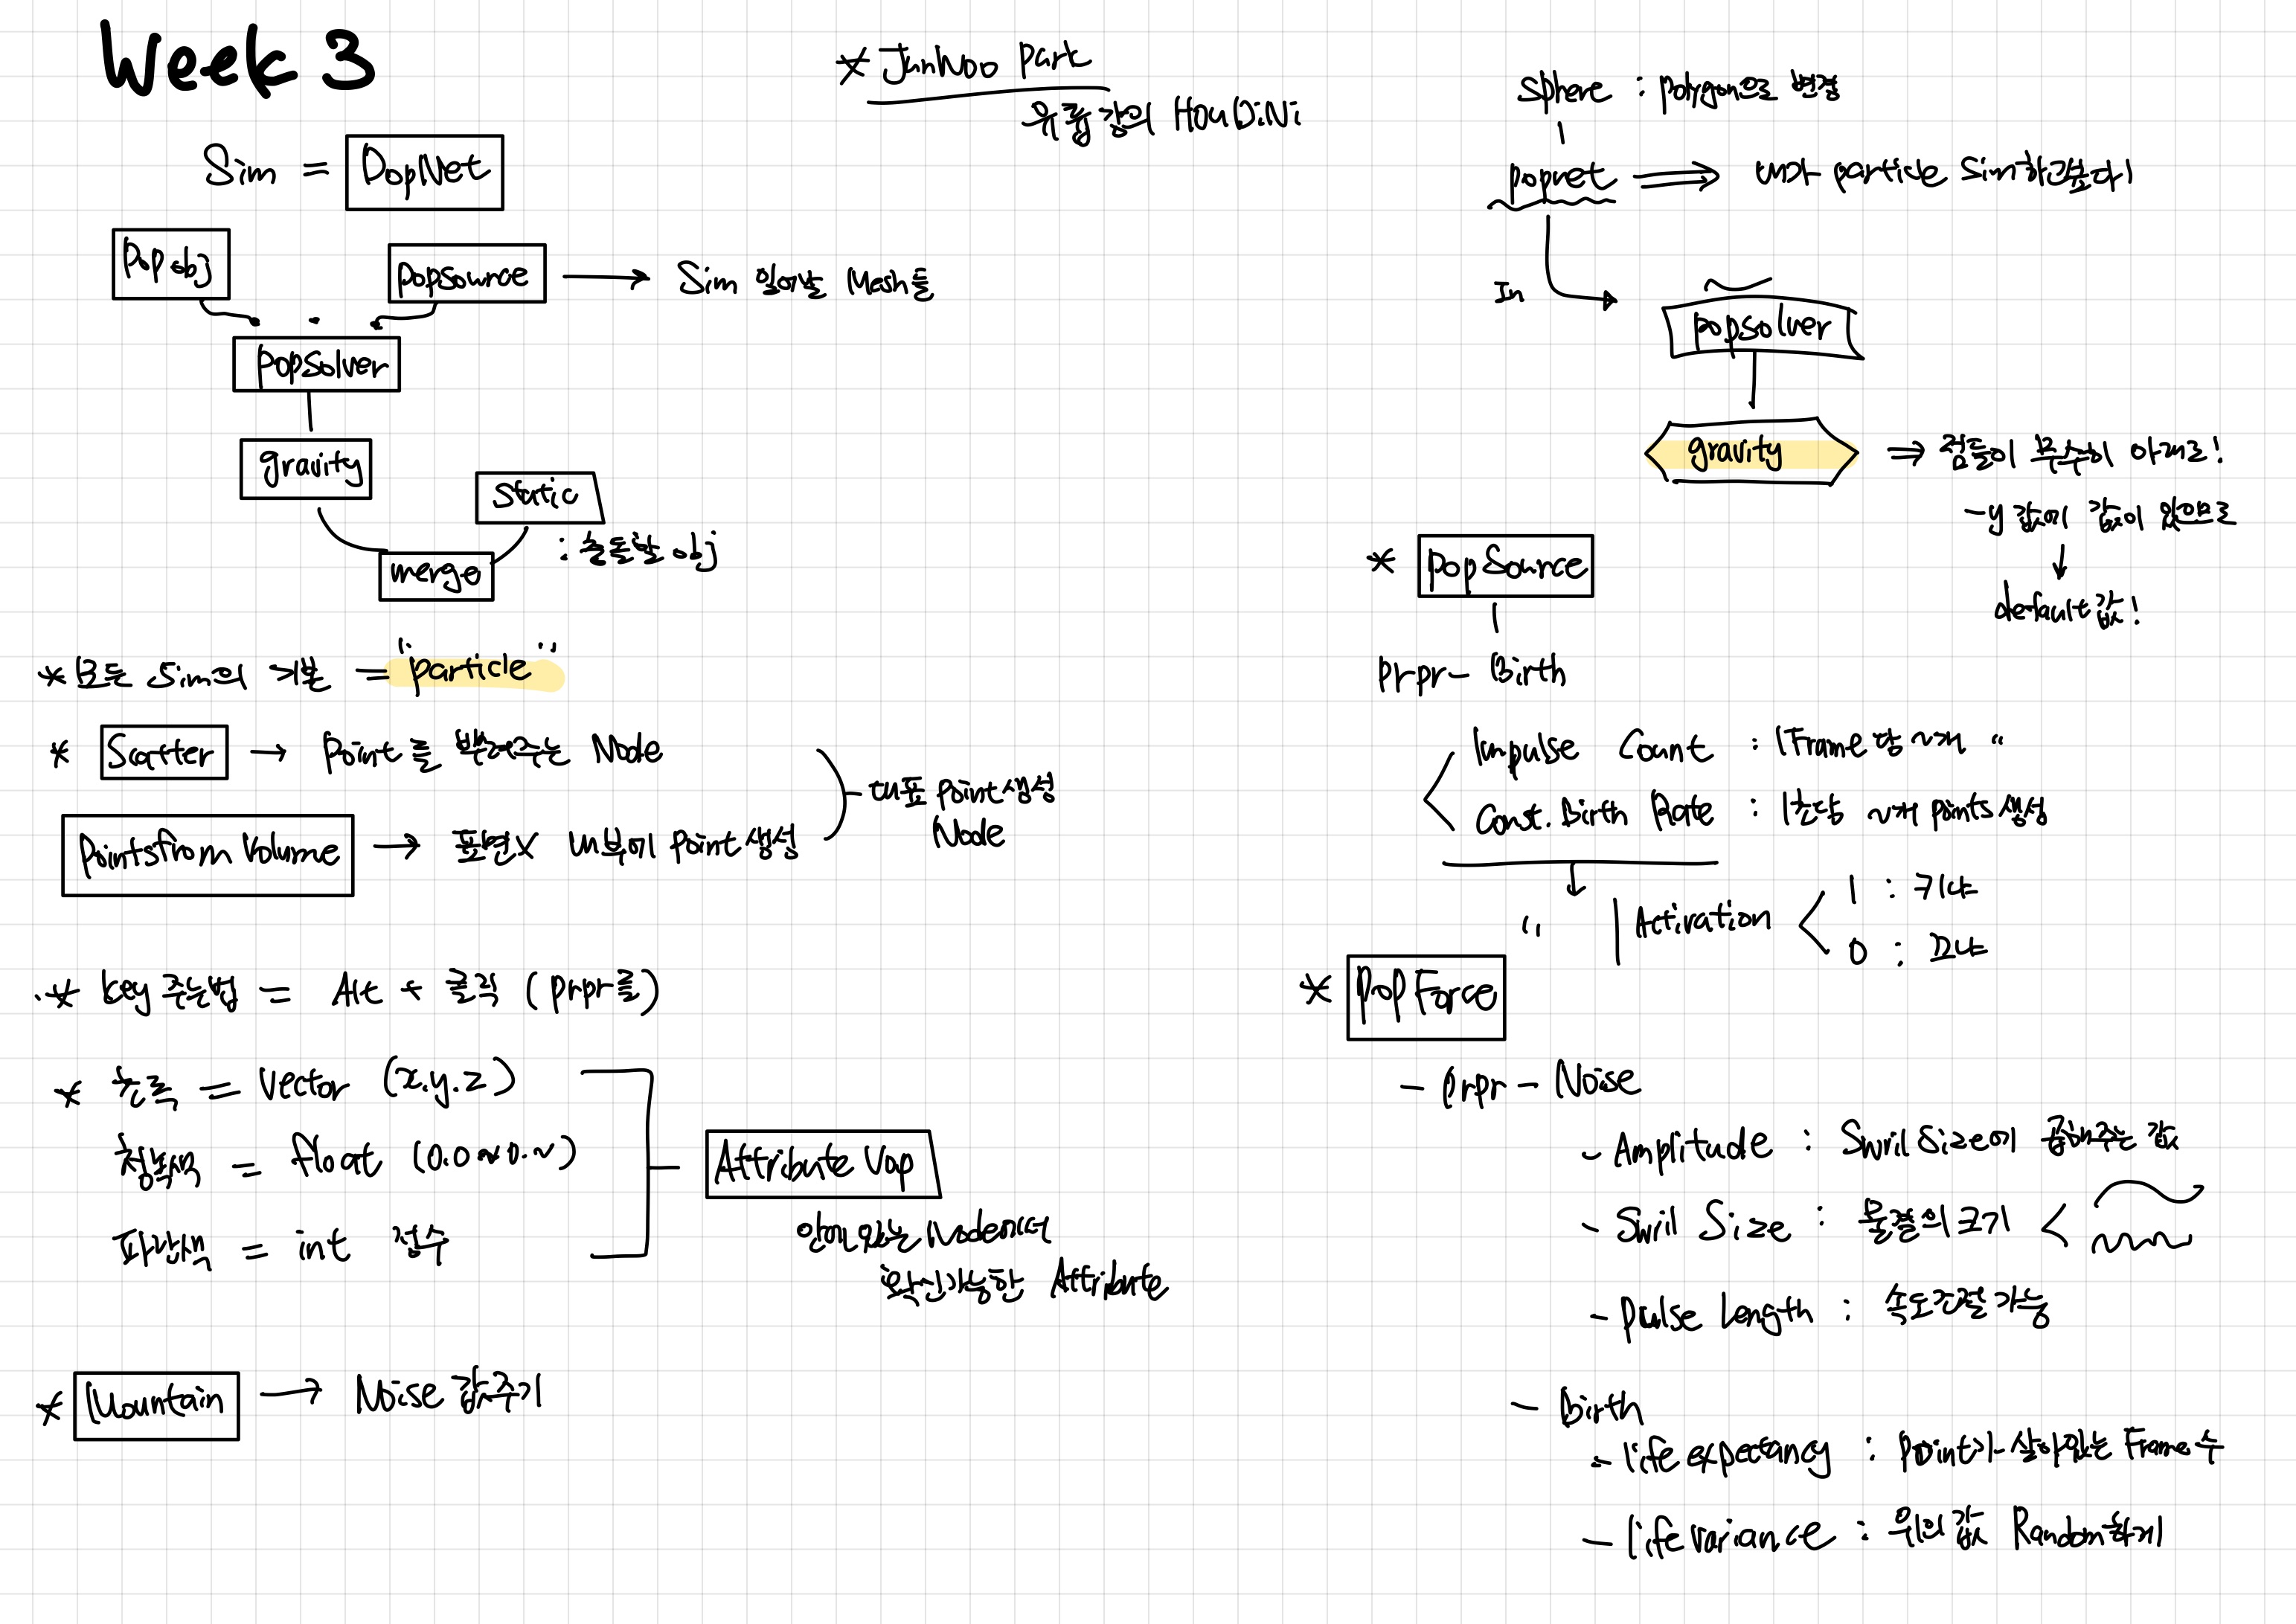 Week 3
* JunWoo Part
유료급 강의 HOUDiNi
Sim = DopNet
Pop obj
Popsource → Sim 일어날 Mesh들
Popsolver
gravity
static
: 충돌할 obj
merge
* 모든 Sim의 기본 = "particle"
* Scatter → Point를 뿌려주는 Node
PointsfromVolume → 표면X 내부에 Point 생성
대표 Point 생성
Node
* key 주는법 = Alt + 클릭 (prpr를)
* 초록 = Vector (x.y.z)
청록색 = float (0.0~0.~)
파란색 = int 정수
Attribute Vop
안에 있는 Node에서
확인가능한 Attribute
* Mountain → Noise 값주기
Sphere : polygon으로 변경
popnet ⇒ 내가 particle Sim하고싶다!
In
popsolver
gravity ⇒ 점들이 무수히 아래로!
- y 값에 값이 있으므로
↓
default 값!
* popSource
prpr - Birth
Impulse Count : 1Frame 당 ~개 "
Const. Birth Rate : 1초당 ~개 points 생성
" | Activation < 1 : 키냐
0 : 끄냐
* Pop Force
- prpr - Noise
- Amplitude : Swril Size에 곱해주는 값
- Swril Size : 물결의 크기
- Pulse Length : 속도조절 가능
- Birth
- life expectancy : Point가 살아있는 Frame 수
- life variance : 위의 값 Random하게